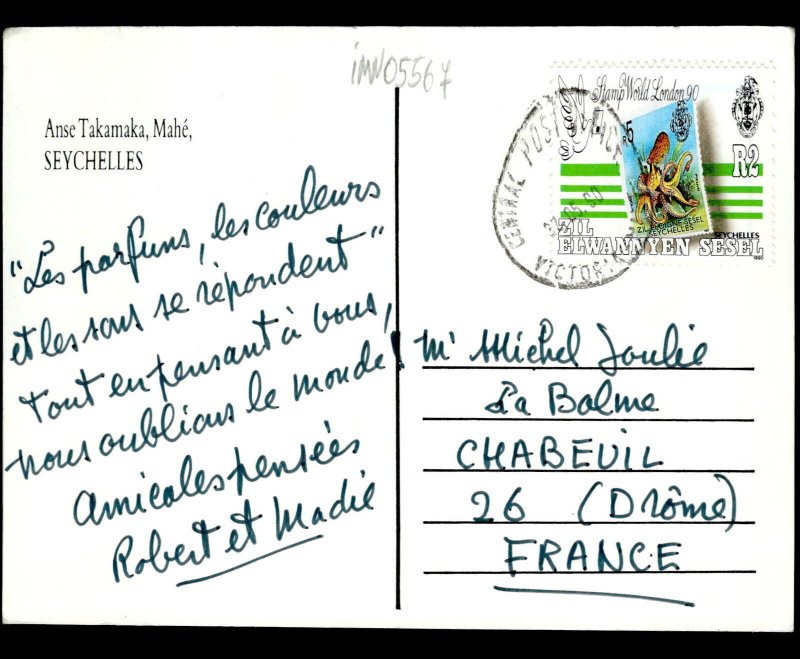 iMN05567
Anse Takamaka, Mahé,
SEYCHELLES
"Les parfums, les couleurs
et les sons se répondent"
Tout en pensant à vous,
nous oublions le monde!
Amicales pensées
Robert et Madie
Stamp World London 90
R5
R2
ZIL ELWANNYEN SESEL
SEYCHELLES
SEYCHELLES
ZIL
ELWANNYEN SESEL
1990
CENTRAL POST
05.90
VICTORIA
Mr Michel Joulie
La Balme
CHABEUIL
26 (Drôme)
FRANCE